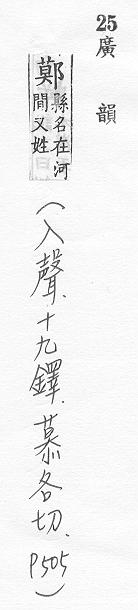 25 廣韻
鄚
縣名在河
間又姓
(入聲.十九鐸.慕各切.P505)